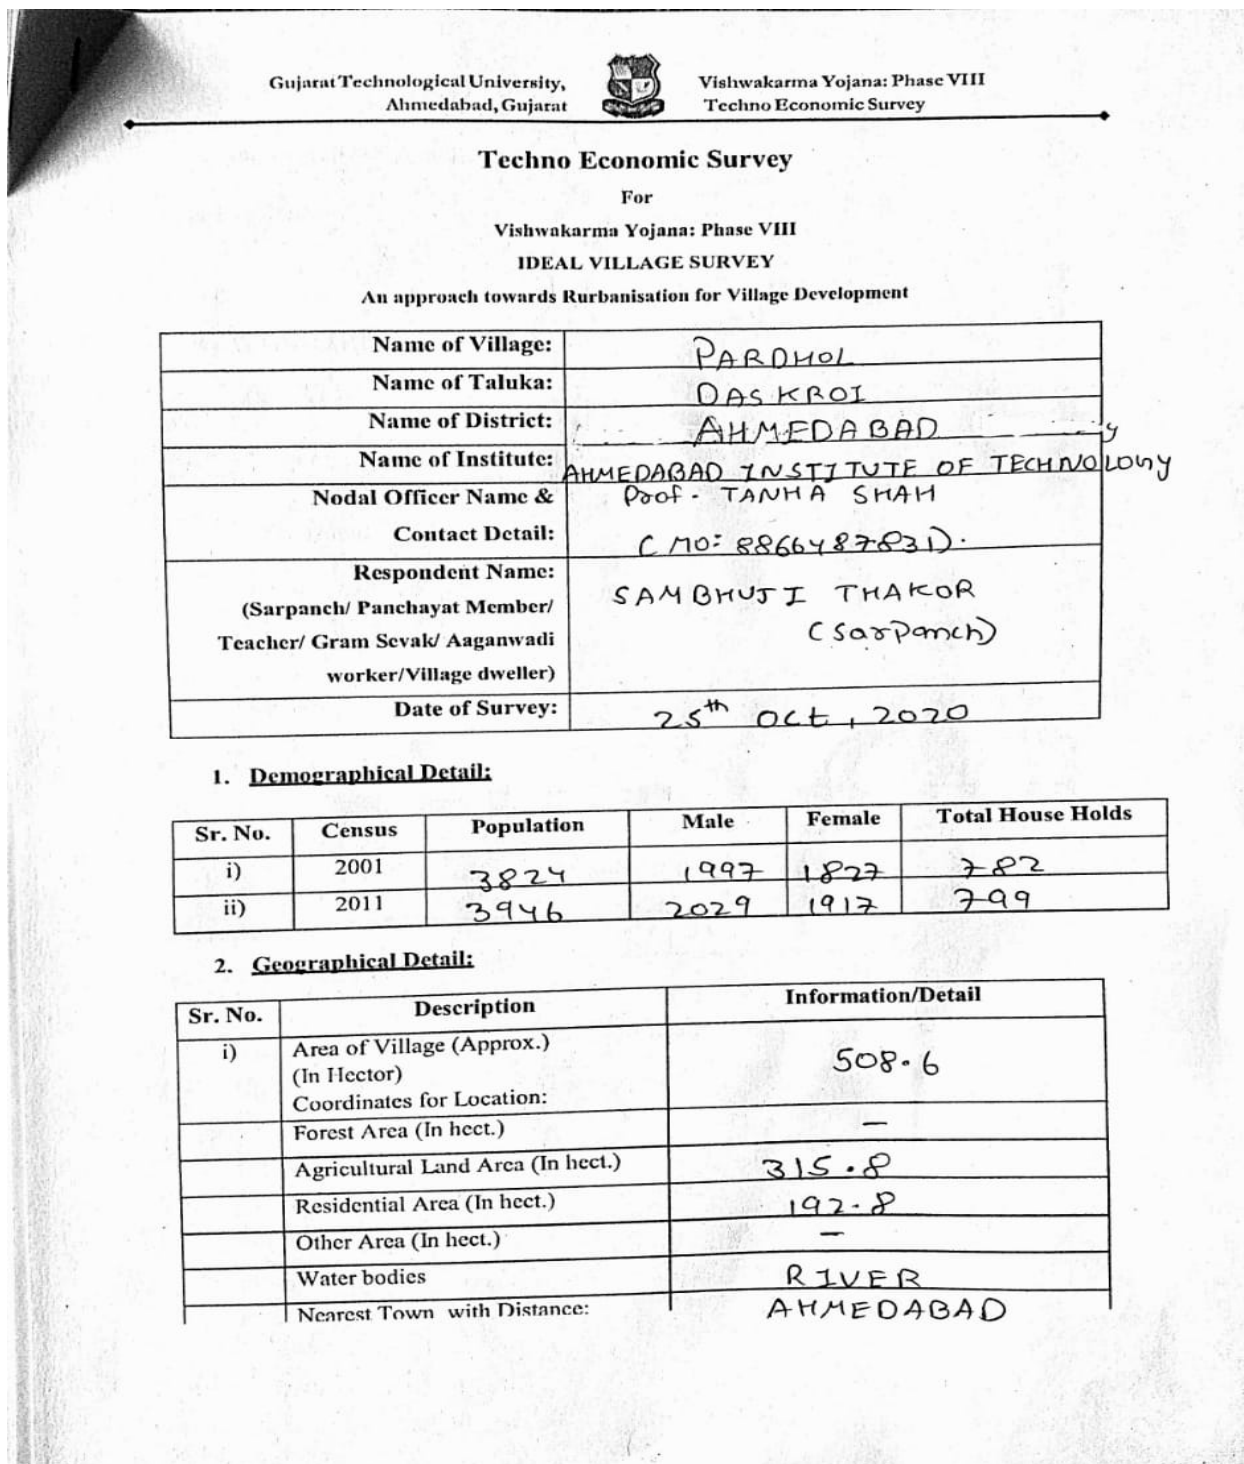 Gujarat Technological University, Vishwakarma Yojana: Phase VIII
Ahmedabad, Gujarat Techno Economic Survey
Techno Economic Survey
For
Vishwakarma Yojana: Phase VIII
IDEAL VILLAGE SURVEY
An approach towards Rurbanisation for Village Development
Name of Village: PARDHOL
Name of Taluka: DASKROI
Name of District: AHMEDABAD
Name of Institute: AHMEDABAD INSTITUTE OF TECHNOLOGY
Nodal Officer Name & Prof. TANHA SHAH
Contact Detail: (MO: 8866487831).
Respondent Name: SAMBHUJI THAKOR
(Sarpanch/ Panchayat Member/ (Sarpanch)
Teacher/ Gram Sevak/ Aaganwadi
worker/Village dweller)
Date of Survey: 25th Oct, 2020
1. Demographical Detail:
Sr. No. Census Population Male Female Total House Holds
i) 2001 3824 1997 1827 782
ii) 2011 3946 2029 1917 799
2. Geographical Detail:
Sr. No. Description Information/Detail
i) Area of Village (Approx.) 508.6
(In Hector)
Coordinates for Location:
Forest Area (In hect.) —
Agricultural Land Area (In hect.) 315.8
Residential Area (In hect.) 192.8
Other Area (In hect.) —
Water bodies RIVER
Nearest Town with Distance: AHMEDABAD